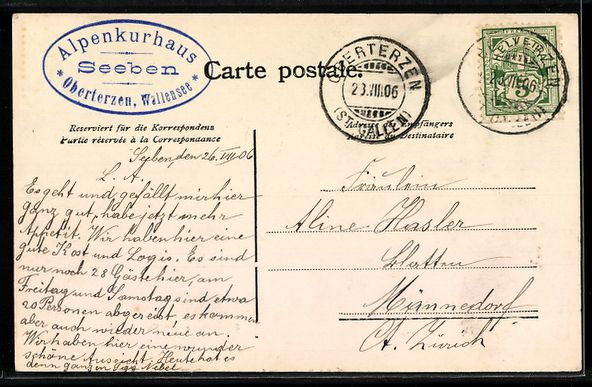 Alpenkurhaus
Seeben
* Oberterzen, Wallensee *
Carte postale.
OBERTERZEN
23.VIII.06
(ST. GALLEN)
HELVETIA
OBERTERZEN
VIII.06
Reserviert für die Korrespondenz
Partie réservée à la Correspondance
Adresse des Empfängers
du Destinataire
Seeben, den 26. VIII. 06
L. A.
Es geht und gefällt mir hier
ganz gut, habe jetzt mehr
Appetit. Wir haben hier eine
gute Kost und Logis. Es sind
nur noch 28 Gäste hier, am
Freitag und Samstag sind etwa
20 Personen abgereist es kommen
aber auch wieder neue an.
Wir haben hier eine wunder
schöne Aussicht. Heute hat es
denn ganzen Tag Nebel
Fräulein
Aline Hasler
Blatten
Männedorf
Ct. Zürich